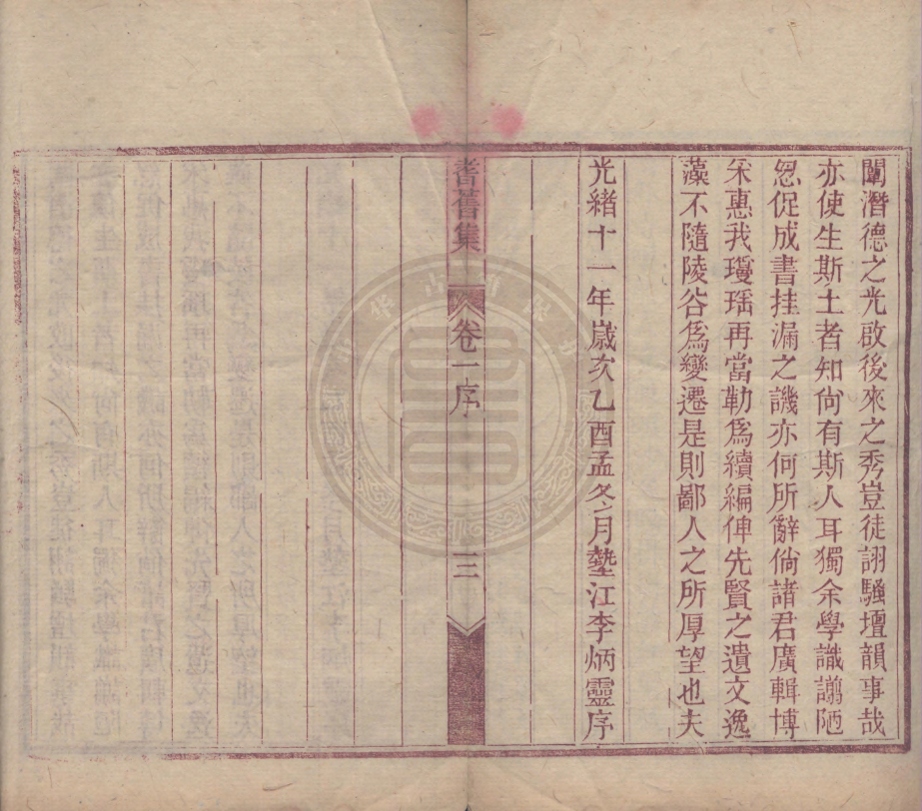 闡潛德之光啟後來之秀豈徒詡騷壇韻事哉
亦使生斯土者知尙有斯人耳獨余學識譾陋
怱促成書挂漏之譏亦何所辭倘諸君廣輯博
采惠我瓊瑶再當勒爲續編俾先賢之遺文逸
藻不隨陵谷爲變遷是則鄙人之所厚望也夫
光緒十一年歲次乙酉孟冬月墊江李炳靈序
耆舊集
卷一序
三